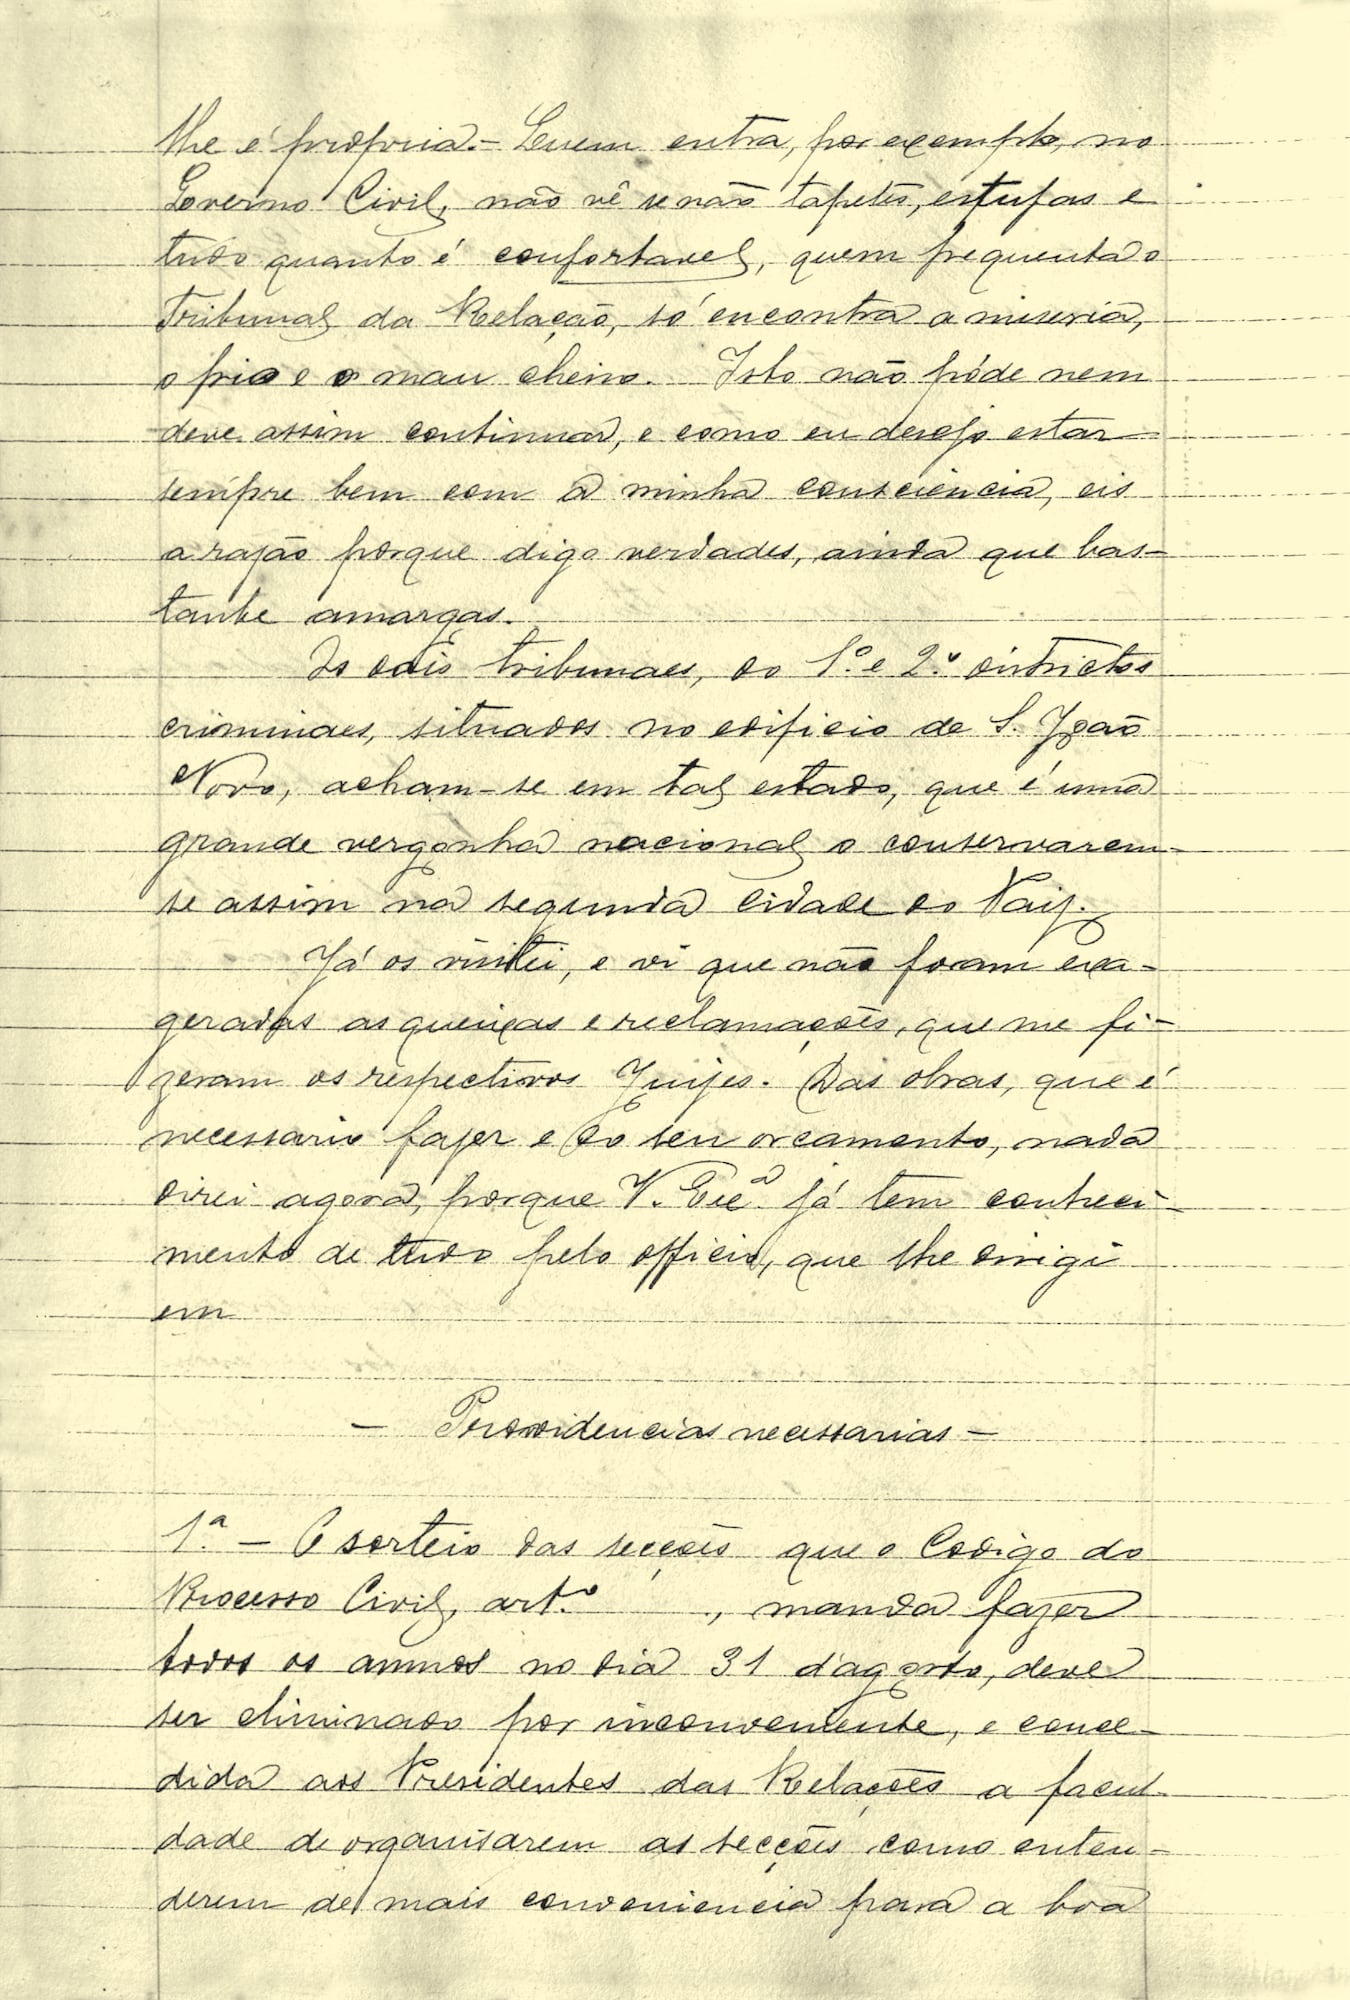 lhe é propria.- Quem entra, por exemplo, no
Governo Civil, não vê senão tapetes, estufas e
tudo quanto é confortavel, quem frequenta o
Tribunal da Relação, só encontra a miseria,
o frio e o mau cheiro. Isto não póde nem
deve assim continuar, e como eu desejo estar
sempre bem com a minha consciencia, eis
a razão porque digo verdades, ainda que bas-
tante amargas.
Os dois tribunaes, do 1.º e 2.º districtos
criminaes, situados no edificio de S. João
Novo, acham-se em tal estado, que é uma
grande vergonha nacional o conservarem-
se assim na segunda cidade do Paiz.
Já os visitei, e vi que não foram exa-
geradas as queixas e reclamações, que me fi-
zeram os respectivos Juizes. Das obras, que é
necessario fazer e do seu orçamento, nada
direi agora, porque V. Exc.ª já tem conheci-
mento de tudo pelo officio, que lhe dirigi
em
- Providencias necessarias -
1.ª - O sorteio das secções que o Codigo do
Processo Civil, art.º ., manda fazer
todos os annos no dia 31 d'agosto, deve
ser eliminado por inconveniente, e conce-
dida aos Presidentes das Relações a facul-
dade de organisarem as secções como enten-
derem de mais conveniencia para a boa